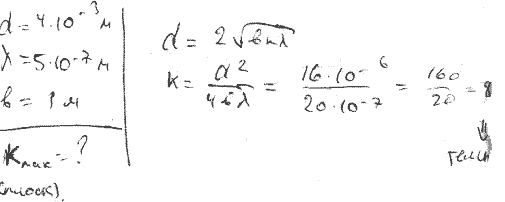 d = 4·10⁻³ м
λ = 5·10⁻⁷ м
b = 1 м
K =?
d = 2√(bкλ)
K = d²/4bλ = 16·10⁻⁶/20·10⁻⁷ = 160/20 = 8
↓